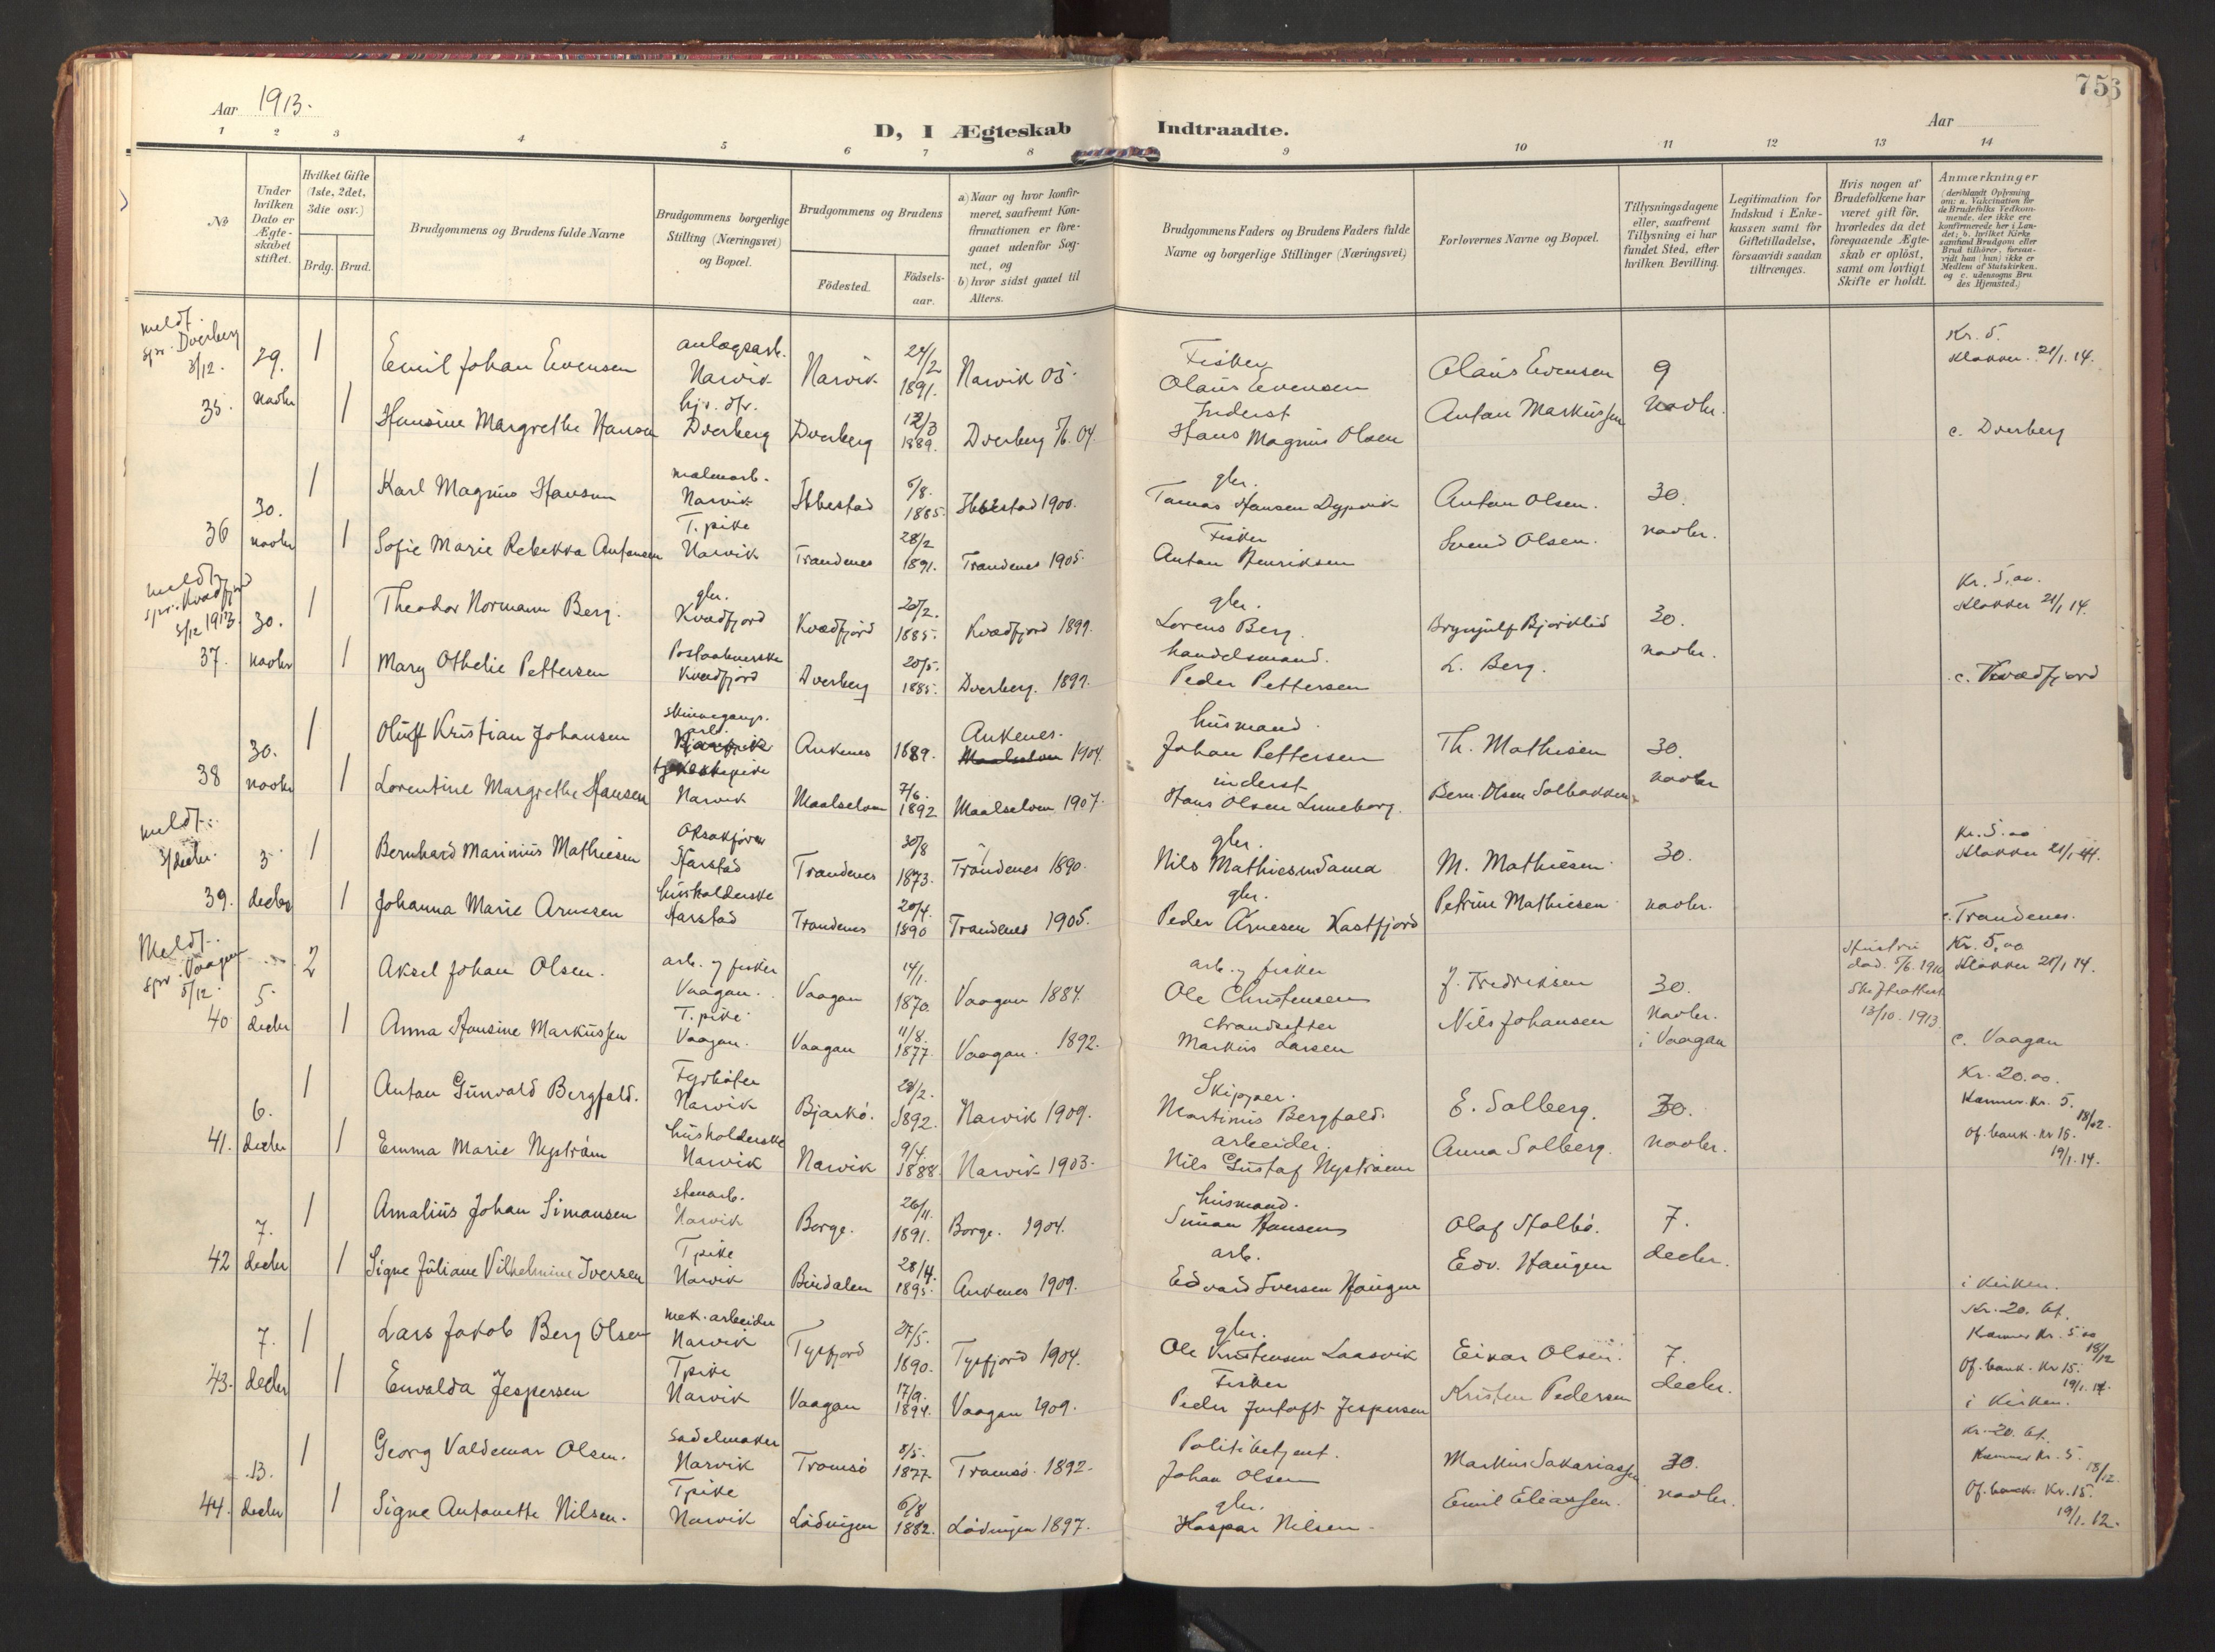 756
Aar 1913.
Aar
D, I Ægteskab Indtraadte.
1 2 3 4 5 6 7 8 9 10 11 12 13 14
№
Under hvilken Dato er Ægteskabet stiftet.
Hvilket Gifte (1ste, 2det, 3die osv.)
Brdg. Brud.
Brudgommens og Brudens fulde Navne
Brudgommens borgerlige Stilling (Næringsvei) og Bopæl.
Brudgommens og Brudens
Födested.
Födselsaar.
a) Naar og hvor konfirmeret, saafremt Konfirmationen er foregaaet udenfor Sognet, og
b) hvor sidst gaaet til Alters.
Brudgommens Faders og Brudens Faders fulde Navne og borgerlige Stillinger (Næringsvei)
Forlovernes Navne og Bopæl.
Tillysningsdagene eller, saafremt Tillysning ei har fundet Sted, efter hvilken Bevilling.
Legitimation for Indskud i Enkekassen samt for Giftetilladelse, forsaavidt saadan tiltrænges.
Hvis nogen af Brudefolkene har været gift för, hvorledes da det foregaaende Ægteskab er oplöst, samt om lovligt Skifte er holdt.
Anmærkninger
(deriblandt Oplysning om: a. Vakcination for de Brudefolks Vedkommende, der ikke ere konfirmerede her i Landet; b. hvilket Kirkesamfund Brudgom eller Brud tilhörer, forsaavidt han (hun) ikke er Medlem af Statskirken. og c. udensogns Brudes Hjemsted.)
meldt. spr. Dverberg 3/12.
35. 29. novbr
1 Emil Johan Evensen anlægsarb. Narvik Narvik 24/2 1891. Narvik 05. Fisker Olaus Evensen Olaus Evensen 9 Kr. 5. Klokker. 21/1. 14.
1 Hansine Margrethe Hansen hj. dtr. Dverberg Dverberg 12/3 1889. Dverberg 5/6. 04. Inderst Hans Magnus Olsen Anton Markussen novbr. c. Dverberg
36 30. novbr
1 Karl Magnus Hansen malmarb. Narvik Ibbestad 5/8. 1885. Ibbestad 1900. gbr. Tomas Hansen Dypvik Anton Olsen. 30.
1 Sofie Marie Rebekka Antonsen T. pike Narvik Trondenes 28/2 1891. Trondenes 1905. Fisker Anton Henriksen Svend Olsen. novbr.
meldt spr. Kvædfjord 3/12 1913.
37. 30. novbr
1 Theodor Normann Berg. gbr. Kvædfjord Kvædfjord 20/2. 1885. Kvædfjord 1899. gbr. Lorens Berg. Brynjulf Bjorklid 30. Kr. 5,00. Klokker 21/1 14.
1 Mary Othelie Pettersen Postaabnerske Kvædfjord Dverberg 20/5. 1885. Dverberg. 1899. handelsmand. Peder Pettersen L. Berg. novbr. c. Kvædfjord
38 30. novbr
1 Oluf Kristian Johansen skinnegangs. arb. Ankenes 1889. Ankenes. Maalselven 1904. husmand. Johan Pettersen Th. Mathisen 30.
1 Lorentine Margrethe Hansen Narvik Maalselven 7/6. 1892 Maalselven 1907. inderst Hans Olsen Luneborg. Bern. Olsen Solbakken. novbr
meldt. 3/decbr.
39. 3 decbr
1 Bernhard Marinius Mathiesen Oksakjører Harstad Trondenes 30/8 1873. Trondenes 1890. gbr. Nils Mathiesen Sama M. Mathiesen 30. Kr. 5.00 Klokker 21/1 14.
1 Johanna Marie Arnesen husholderske Harstad Trondenes 20/4. 1890 Trondenes 1905. gbr. Peder Arnesen Kastfjord Petrine Mathiesen novbr. c. Trondenes.
Meldt. spr. Vaagan 5/12.
40. 5. decbr
2 Aksel Johan Olsen. arb. og fisker Vaagan. Vaagan 14/1. 1870. Vaagan 1884. arb. og fisker Ole Christensen J. Fredriksen 30. Hustru død. 5/6. 1910 Skifteattest 13/10. 1913. Kr. 5,00 Klokker 21/1 14.
1 Anna Hansine Markussen T. pike Vaagan. Vaagan 11/8. 1877. Vaagan. 1892. strandsitter Markus Larsen Nils Johansen Novbr. i Vaagan c. Vaagan
41. 6. decbr
1 Anton Gunvald Bergfald. Fyrbøter Narvik Bjarkö. 28/2. 1892. Narvik 1909. Skipper. Martinus Bergfald. E. Solberg. 30. Kr. 20.00. Kammer. kr. 5. 18/12.
1 Emma Marie Nyström husholderske Narvik Narvik 9/4. 1888. Narvik 1903. arbeider. Nils Gustaf Nystrøm Anna Solberg. novbr. Of. bank. kr 15. 19/1. 14.
42 7. decbr
1 Amalius Johan Simonsen stenarb. Narvik Borge. 26/11. 1891. Borge. 1904. husmand. Simon Hansen Olaf Stolbö. 7.
1 Signe Juliane Vilhelmine Iversen T pike Narvik Bindalen 28/4. 1895. Ankenes 1909. arb. Edvard Iversen Haugen Edv. Haugen decbr. i kirken.
43. 7. decbr
1 Lars Jakob Berg Olsen mek. arbeider Narvik Tysfjord 27/5. 1890. Tysfjord 1904. gbr. Ole Kristensen Laasvik Einar Olsen. 7. Kr. 20. bt. Kammer Kr. 5 00 18/12
1 Envalda Jespersen T pike Narvik Vaagan 17/9. 1894. Vaagan 1909. Fisker Peder Jentoft Jespersen Kristen Pedersen decbr. Of. bank. Kr 15. 19/1. 14. i Kirken.
44. 13. decbr
1 Georg Valdemar Olsen. Sadelmaker Narvik Tromsö 8/5. 1877. Tromsö. 1892. Politibetjent. Johan Olsen Markus Sakariassen 30. Kr. 20. bt. Kammer Kr. 5. 18/12.
1 Signe Antonette Nilsen. T pike Narvik Lödingen 6/8 1882. Lödingen 1897. gbr. Kaspar Nilsen. Emil Eliassen. novbr. Of. bank. Kr. 15. 19/1. 12.